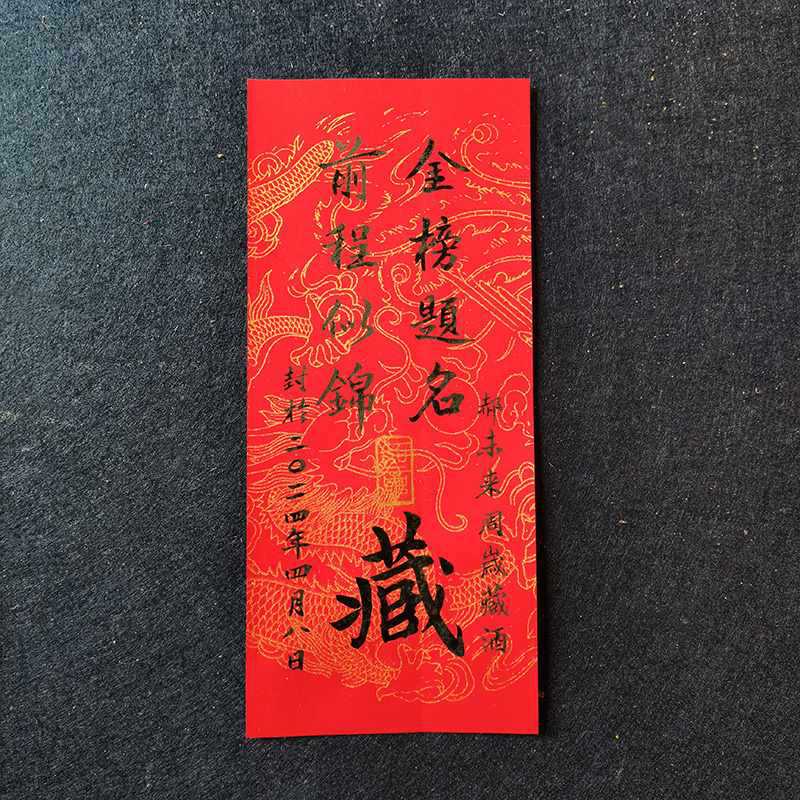 郝未来周歲藏酒
金榜題名
前程似錦
藏
封於二〇二四年四月八日